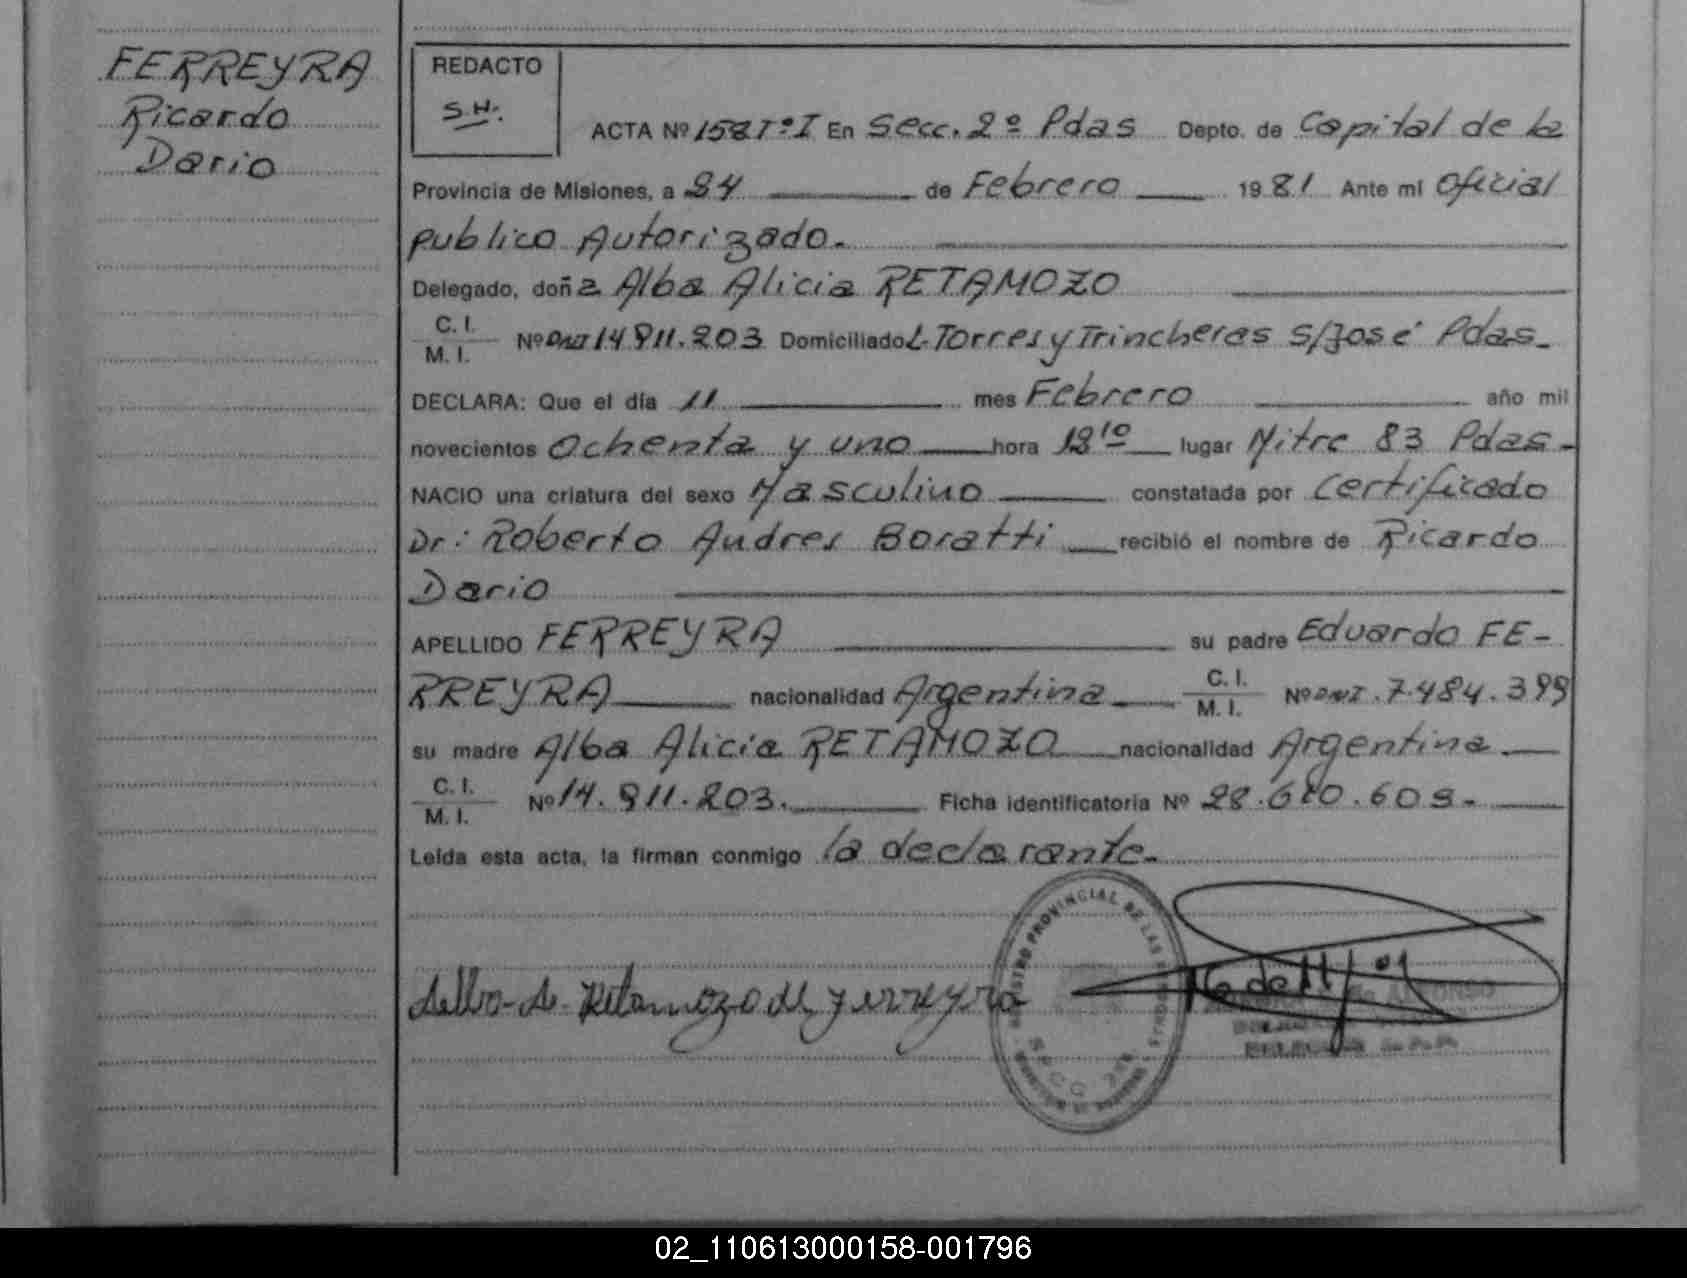 FERREYRA
Ricardo
Dario
REDACTO
S.H.
ACTA Nº 158 Tº I En Secc. 2º Pdas Depto. de Capital de la
Provincia de Misiones, a 24 de Febrero 1981 Ante mi Oficial
publico Autorizado.
Delegado, doña Alba Alicia RETAMOZO
C. I.
M. I. Nº DNI 14.911.203 Domiciliado L. Torres y Trincheras S/José Pdas.
DECLARA: Que el día 11 mes Febrero año mil
novecientos Ochenta y uno hora 18 10 lugar Mitre 83 Pdas.
NACIO una criatura del sexo Masculino constatada por Certificado
Dr: Roberto Andres Boratti recibió el nombre de Ricardo
Dario
APELLIDO FERREYRA su padre Eduardo FE-
RREYRA nacionalidad Argentina C. I.
M. I. Nº DNI. 7.484.399
su madre Alba Alicia RETAMOZO nacionalidad Argentina
C. I.
M. I. Nº 14.911.203. Ficha identificatoria Nº 28.610.609.
Leída esta acta, la firman conmigo la declarante.
Retamozo de Ferreyra
REGISTRO PROVINCIAL DE LAS PERSONAS
02_110613000158-001796